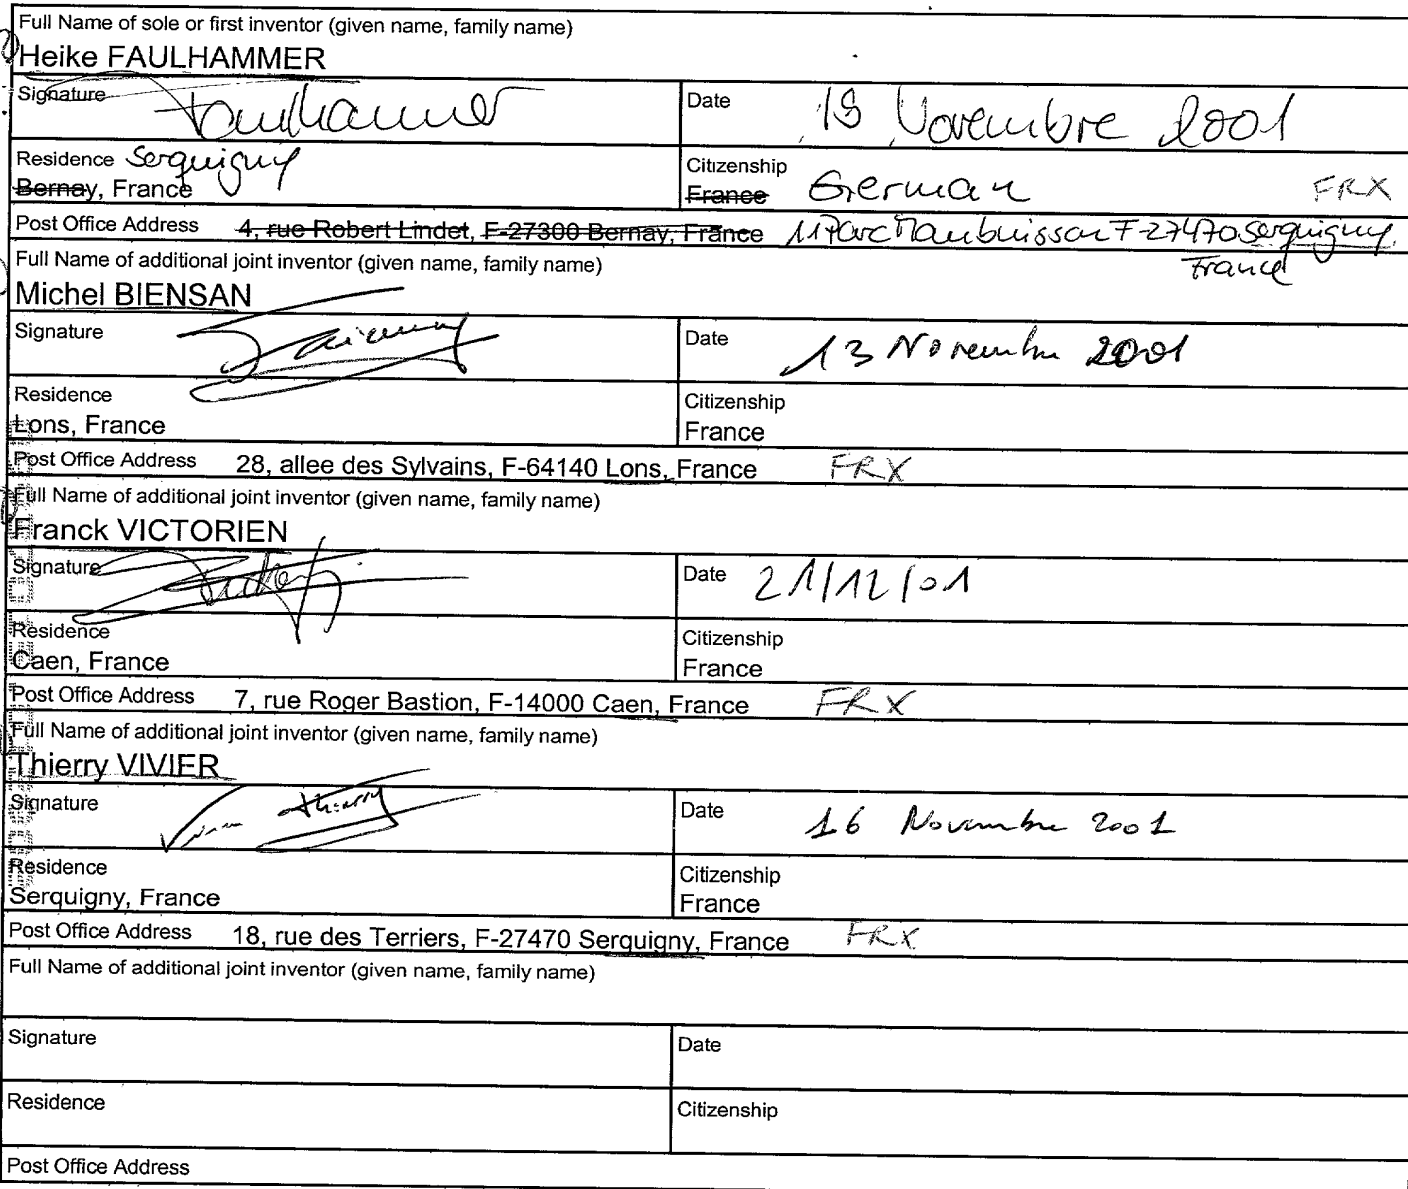 Full Name of sole or first inventor (given name, family name)
Heike FAULHAMMER
Signature Faulhammer
Date 19 Novembre 2001
Residence Serquigny
Bernay, France
Citizenship
France German FRX
Post Office Address 4, rue Robert Lindet, F-27300 Bernay, France 11 Parc Maubuisson F-27470 Serquigny,
France
Full Name of additional joint inventor (given name, family name)
Michel BIENSAN
Signature
Date 13 Novembre 2001
Residence
Lons, France
Citizenship
France
Post Office Address 28, allee des Sylvains, F-64140 Lons, France FRX
Full Name of additional joint inventor (given name, family name)
Franck VICTORIEN
Signature
Date 21/12/01
Residence
Caen, France
Citizenship
France
Post Office Address 7, rue Roger Bastion, F-14000 Caen, France FRX
Full Name of additional joint inventor (given name, family name)
Thierry VIVIER
Signature Vivier Thierry
Date 16 Novembre 2001
Residence
Serquigny, France
Citizenship
France
Post Office Address 18, rue des Terriers, F-27470 Serquigny, France FRX
Full Name of additional joint inventor (given name, family name)
Signature
Date
Residence
Citizenship
Post Office Address